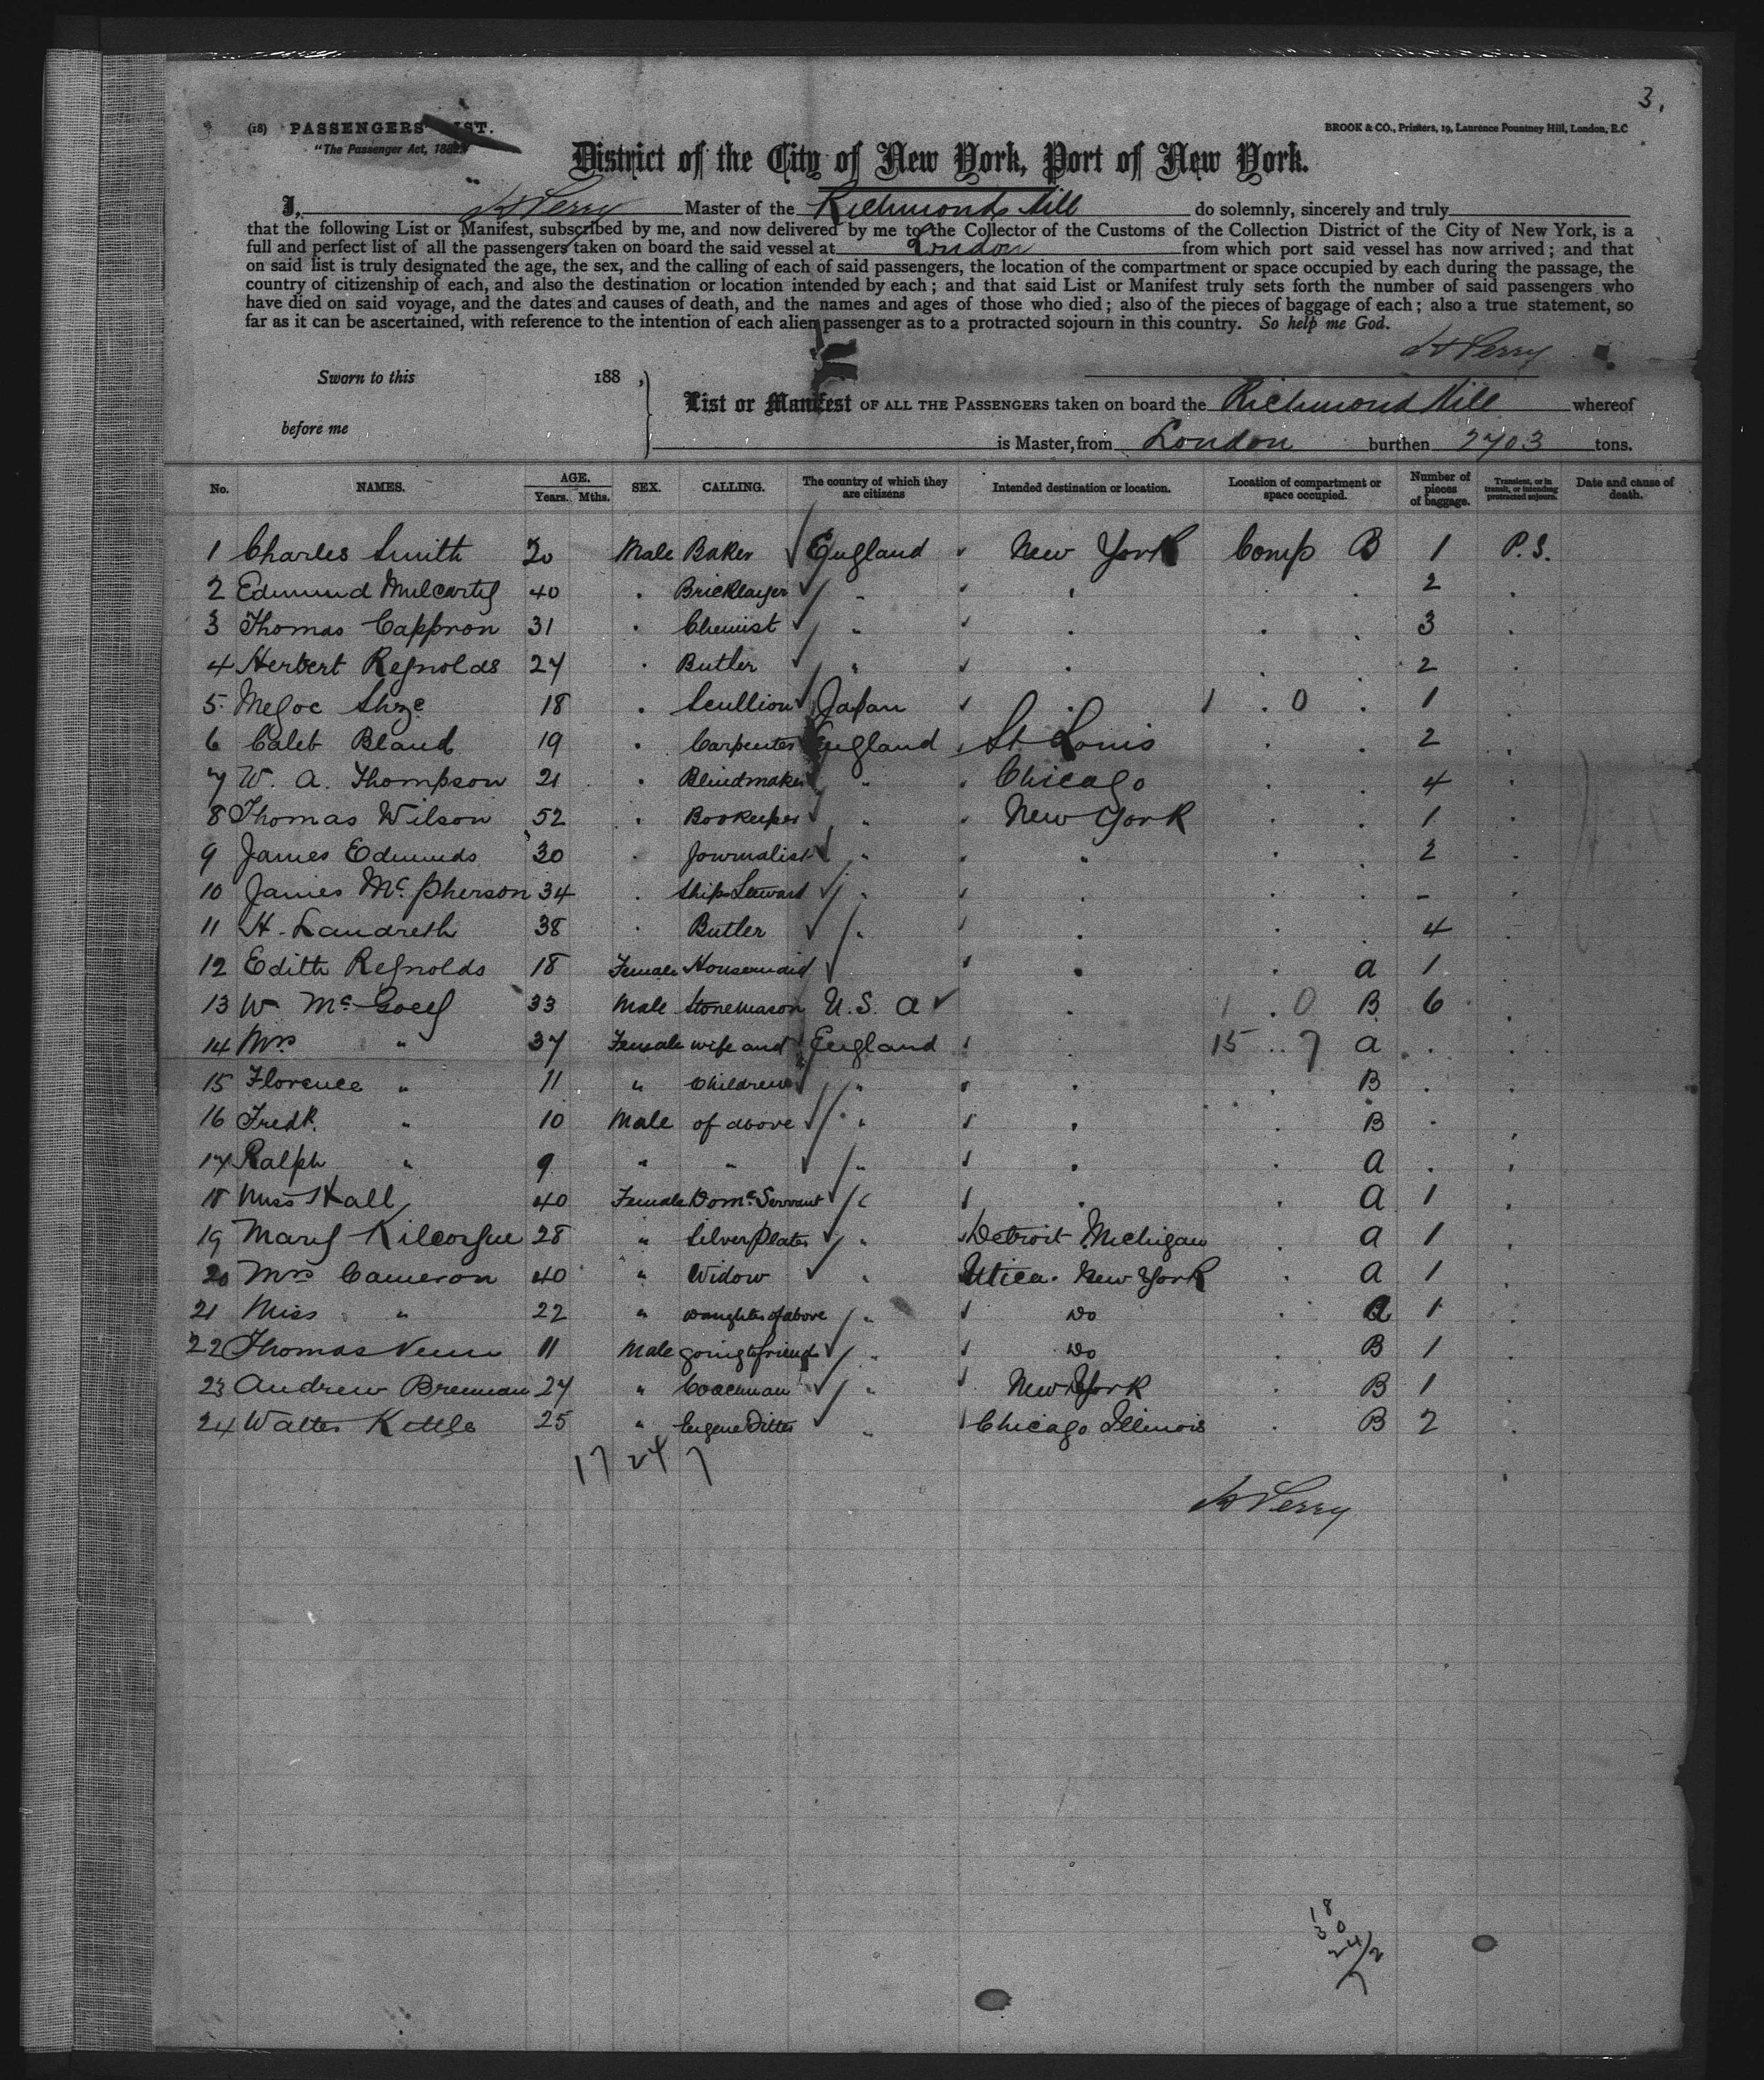 3.
(18) PASSENGERS LIST.
BROOK & CO., Printers, 19, Laurence Pountney Hill, London, E.C
"The Passenger Act, 1882."
District of the City of New York, Port of New York.
I, Perry Master of the Richmond Hill do solemnly, sincerely and truly
that the following List or Manifest, subscribed by me, and now delivered by me to the Collector of the Customs of the Collection District of the City of New York, is a
full and perfect list of all the passengers taken on board the said vessel at London from which port said vessel has now arrived; and that
on said list is truly designated the age, the sex, and the calling of each of said passengers, the location of the compartment or space occupied by each during the passage, the
country of citizenship of each, and also the destination or location intended by each; and that said List or Manifest truly sets forth the number of said passengers who
have died on said voyage, and the dates and causes of death, and the names and ages of those who died; also of the pieces of baggage of each; also a true statement, so
far as it can be ascertained, with reference to the intention of each alien passenger as to a protracted sojourn in this country. So help me God.
Perry
Sworn to this 188 ,
before me
List or Manifest OF ALL THE PASSENGERS taken on board the Richmond Hill whereof
is Master, from London burthen 2703 tons.
No. NAMES. AGE. Years. Mths. SEX. CALLING. The country of which they are citizens Intended destination or location. Location of compartment or space occupied. Number of pieces of baggage. Transient, or in transit, or intending protracted sojourn. Date and cause of death.
1 Charles Smith 20 Male Baker England New York Comp B 1 P.S.
2 Edmund Mulcarty 40 . Bricklayer " . . . 2 .
3 Thomas Cappron 31 . Chemist " . . . 3 .
4 Herbert Reynolds 27 . Butler " . . . 2 .
5 18 . Scullion Japan . 1 . 0 . 1 .
6 Caleb Bland 19 . Carpenter England St Louis . . 2 .
7 W. A. Thompson 21 . Blindmaker " Chicago . . 4 .
8 Thomas Wilson 52 . Bookeeper " New York . . 1 .
9 James Edmunds 30 . Journalist " " . . 2 .
10 James McPherson 34 . Ships Steward " . . . - .
11 H. Landreth 38 . Butler " . . . 4 .
12 Edith Reynolds 18 Female Housemaid . . a 1 .
13 W. Mc 33 Male Stonemason U.S.A . 1 . 0 B 6 .
14 Mrs " 37 Female wife and England . 15 .. 7 a . .
15 Florence " 11 " Children " . . B . .
16 Fredk. " 10 Male of above " . . B . .
17 Ralph " 9 " " " . . a . .
18 Miss Hall 40 Female Domc Servant " . . a 1 .
19 Mary 28 " Silver Plater " Detroit Michigan . a 1 .
20 Mrs Cameron 40 " Widow " Utica. New York . a 1 .
21 Miss " 22 " Daughter of above " Do . a 1 .
22 Thomas Venn 11 Male going to friends " Do . B 1 .
23 Andrew Brennan 27 " Coachman " New York . B 1 .
24 Walter Kettle 25 " " Chicago Illinois . B 2 .
17 24 7
Perry
18
30
24/2
7